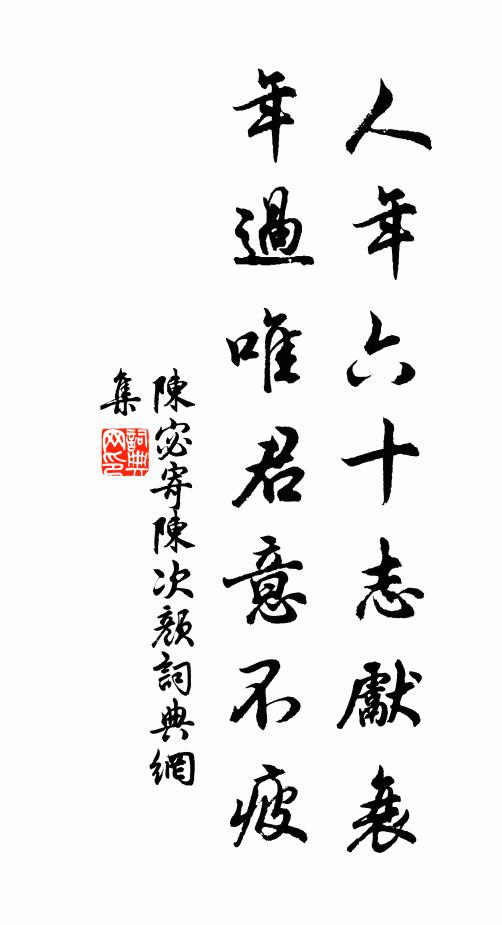 人年六十志獻衰
年過唯君意不疲
陳宓寄陳次顏詞典網
集
詞典网印